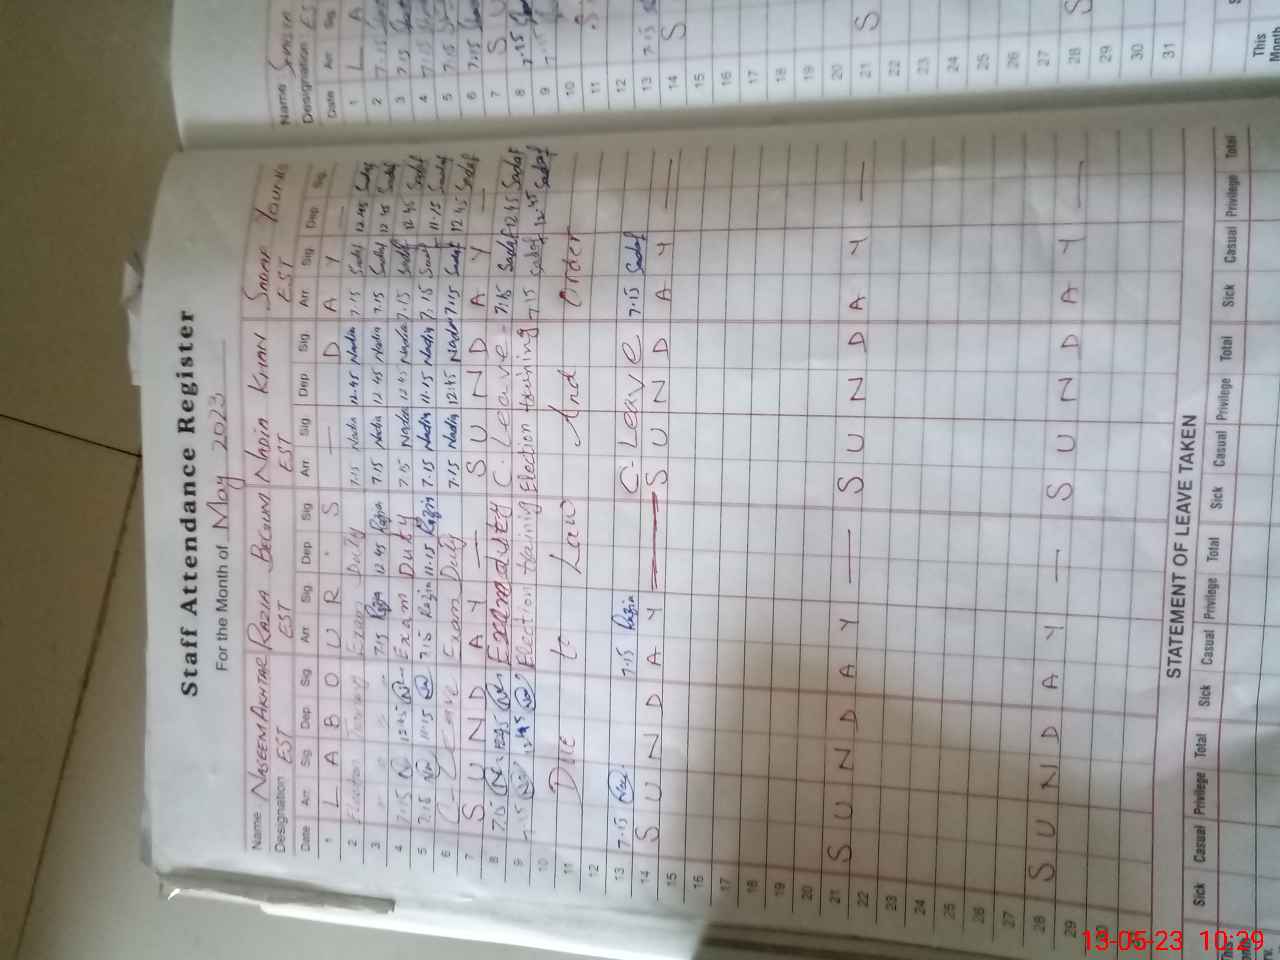 Staff Attendance Register
For the Month of May 2023
Name NASEEM AKHTAR RAZIA BEGUM NADIA KHAN SADAF YOUNIS
Designation EST EST EST EST
Date Arr. Sig. Dep. Sig. Arr Sig Dep Sig Arr Sig Dep Sig Arr Sig Dep Sig.
1 L A B O U R S D A Y
2 Election Training Exam Duty 7.15 Nadia 12.45 Nadia 7.15 Sadaf 12.45 Sadaf
3 7.15 Razia 12 45 Razia 7.15 Nadia 12 45 Nadia 7.15 Sadaf 12 45 Sadaf
4 7.15 12.45 Exam Duty 7.15 Nadia 12.45 Nadia 7.15 Sadaf 12.45 Sadaf
5 7.15 11.15 7.15 Razia 11.15 Razia 7.15 Nadia 11.15 Nadia 7.15 Sadaf 11.15 Sadaf
6 C-Leave Exam Duty 7.15 Nadia 12.45 Nadia 7.15 Sadaf 12.45 Sadaf
7 S U N D A Y — S U N D A Y —
8 7.15 12.45 Exam duty C. Leave - 7.15 Sadaf 12.45 Sadaf
9 7.15 12.45 Election training Election training 7.15 Sadaf 12.45 Sadaf
10
11 Due to Law And Order
12
13 7.15 7.15 Razia C. Leave 7.15 Sadaf
14 S U N D A Y — S U N D A Y —
15
16
17
18
19
20
21 S U N D A Y — S U N D A Y —
22
23
24
25
26
27
28 S U N D A Y — S U N D A Y —
29
STATEMENT OF LEAVE TAKEN
Sick Casual Privilege Total Sick Casual Privilege Total Sick Casual Privilege Total Sick Casual Privilege Total
This
Name
Designation
Date Arr Sig
1 L A
2 7.15
3 7.15
4 7.15
5 7.15
6 7.15
7 S U
8 7.15
9 7.15
10
11
12
13 7.15
14 S
15
16
17
18
19
20
21 S
22
23
24
25
26
27
28 S
29
30
31
This
Month
13-05-23 10:29